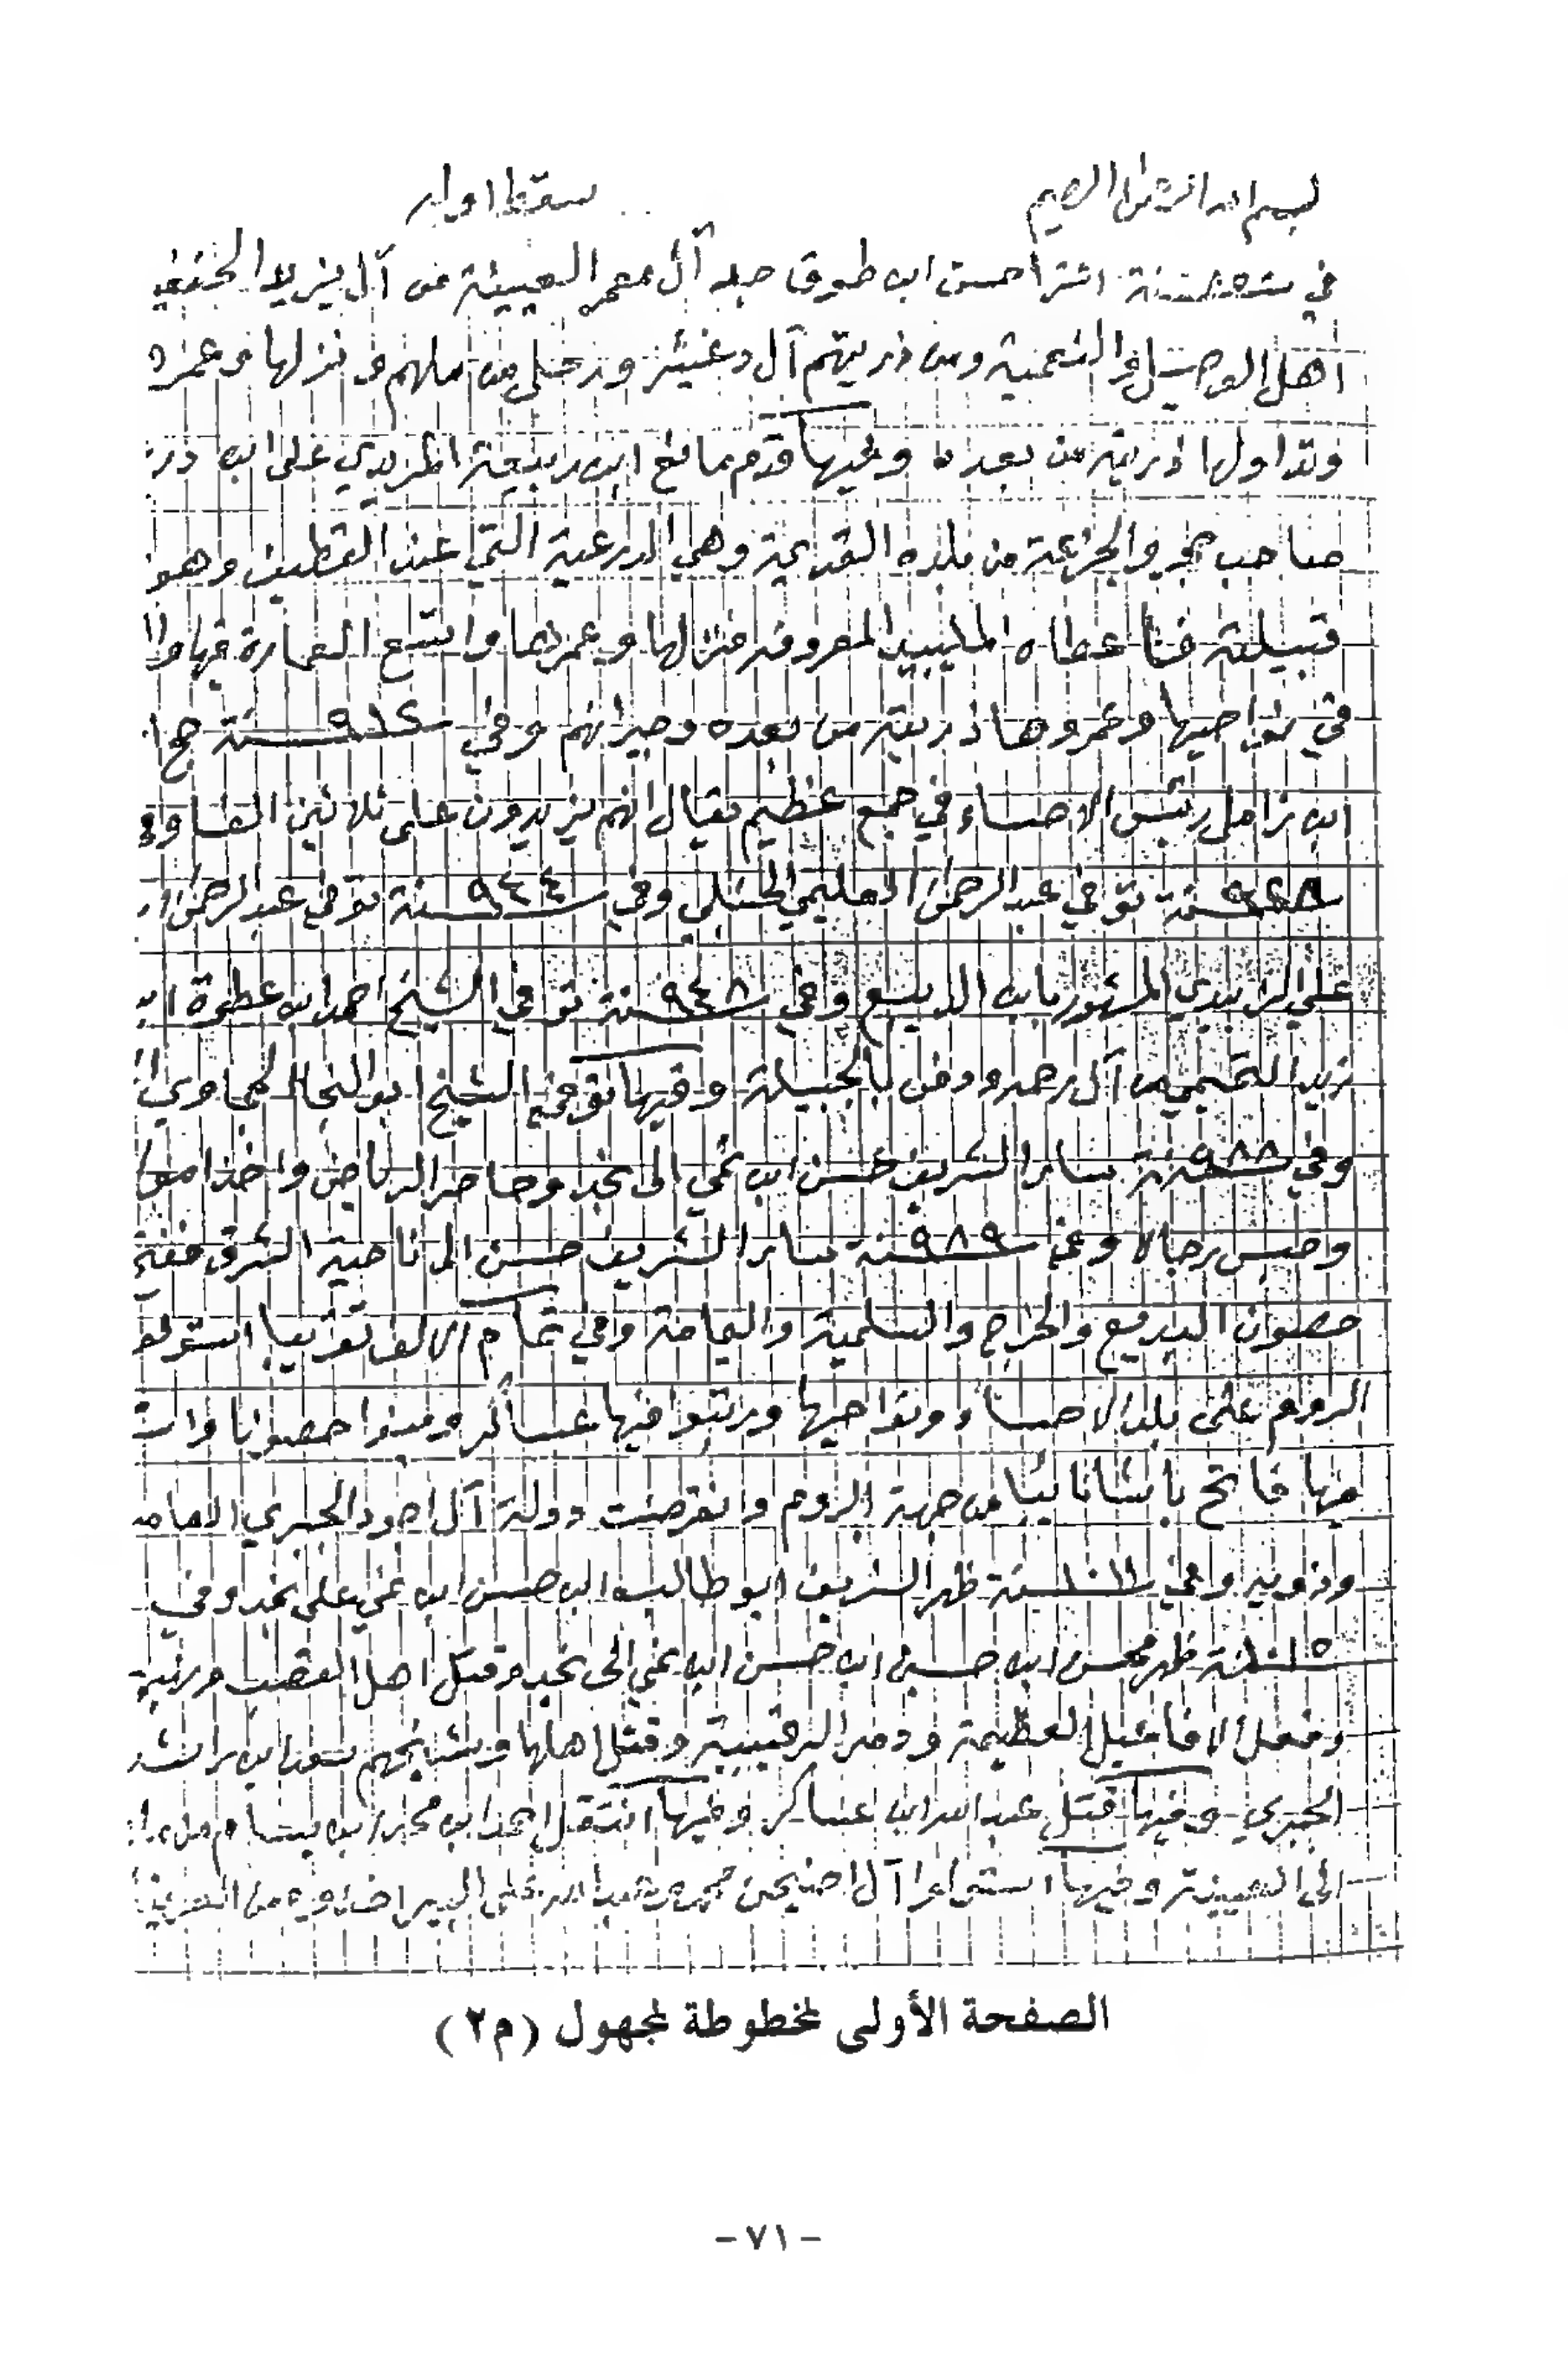 بسم الله الرحمن الرحيم
سقط اوله
في سنة اشترا حسن ابن طوق جد آل معمر العيينة من آل يزيد الحنفي
اهل الوصيل والنعمية ومن ذريتهم آل دغيثر ورحل من ملهم ونزلها وعمره
وتداولها ذريته من بعده وفيها قدم مانع ابن ربيعة المريدي على ابن در
صاحب حجر والجزعة من بلده القديمة وهي الدرعية التي عند القطيف وهو
قبيلته فاعطاه المليبيد المعروفه فنزلها وعمرها واتسع العمارة فيها وا
في نواحيها وعمروها ذريته من بعده وجيرانهم وفي ٩١٢ سنة حج ا
ابن زامل رئيس الاحساء في جمع عظيم يقال انهم يزيدون على ثلاثين الفا وفي
٩٢٨ سنة توفي عبدالرحمن العليمي الحنبلي وفي ٩٤٤ سنة توفي عبدالرحمن ا
علي الزبيدي المشهور بابن الديبع وفي ٩٤٨ سنة توفي الشيخ احمد ابن عطوة ابن
زيد التميمي من آل رحمه ودفن بالجبيلة وفيها توفي الشيخ ابو النجا الحجاوي
وفي ٩٨٨ سنة سار الشريف حسن ابن نمي الى نجد وحاصر الرياض واخذ اموا
وحبس رجالا وفي ٩٨٩ سنة سار الشريف حسن الى ناحية الشرق ففتح
حصون البديع والخرج والسلمية واليمامة وفي تمام الالف تقريبا استولو
الروم على بلد الاحساء ونواحيها ورتبوا فيها عساكر وبنوا حصونا واست
فيها فاتح باشا نايبا من جهة الروم وانقرضت دولة آل اجود الجبري العامر
وذويه وفي ١٠١١ سنة ظهر الشريف ابو طالب ابن حسن ابن نمي على نجد وفي
١٠١٥ سنة ظهر محسن ابن حسين ابن حسن ابن نمي الى نجد وقتل اهل القصب ونهبه
وفعل الافاعيل العظيمة ودمر الرقيبية وقتل اهلها وشيخهم سعد ابن راشد
الجبري وفيها قتل عبدالله ابن عساكر وفيها انتقل احمد ابن محمد ابن بسام من
الى العيينة وفيها استولوا آل احنيحن محمد وعبدالله على البير اخذوه من العرينا
الصفحة الأولى لمخطوطة لمجهول (م٢)
- ٧١ -